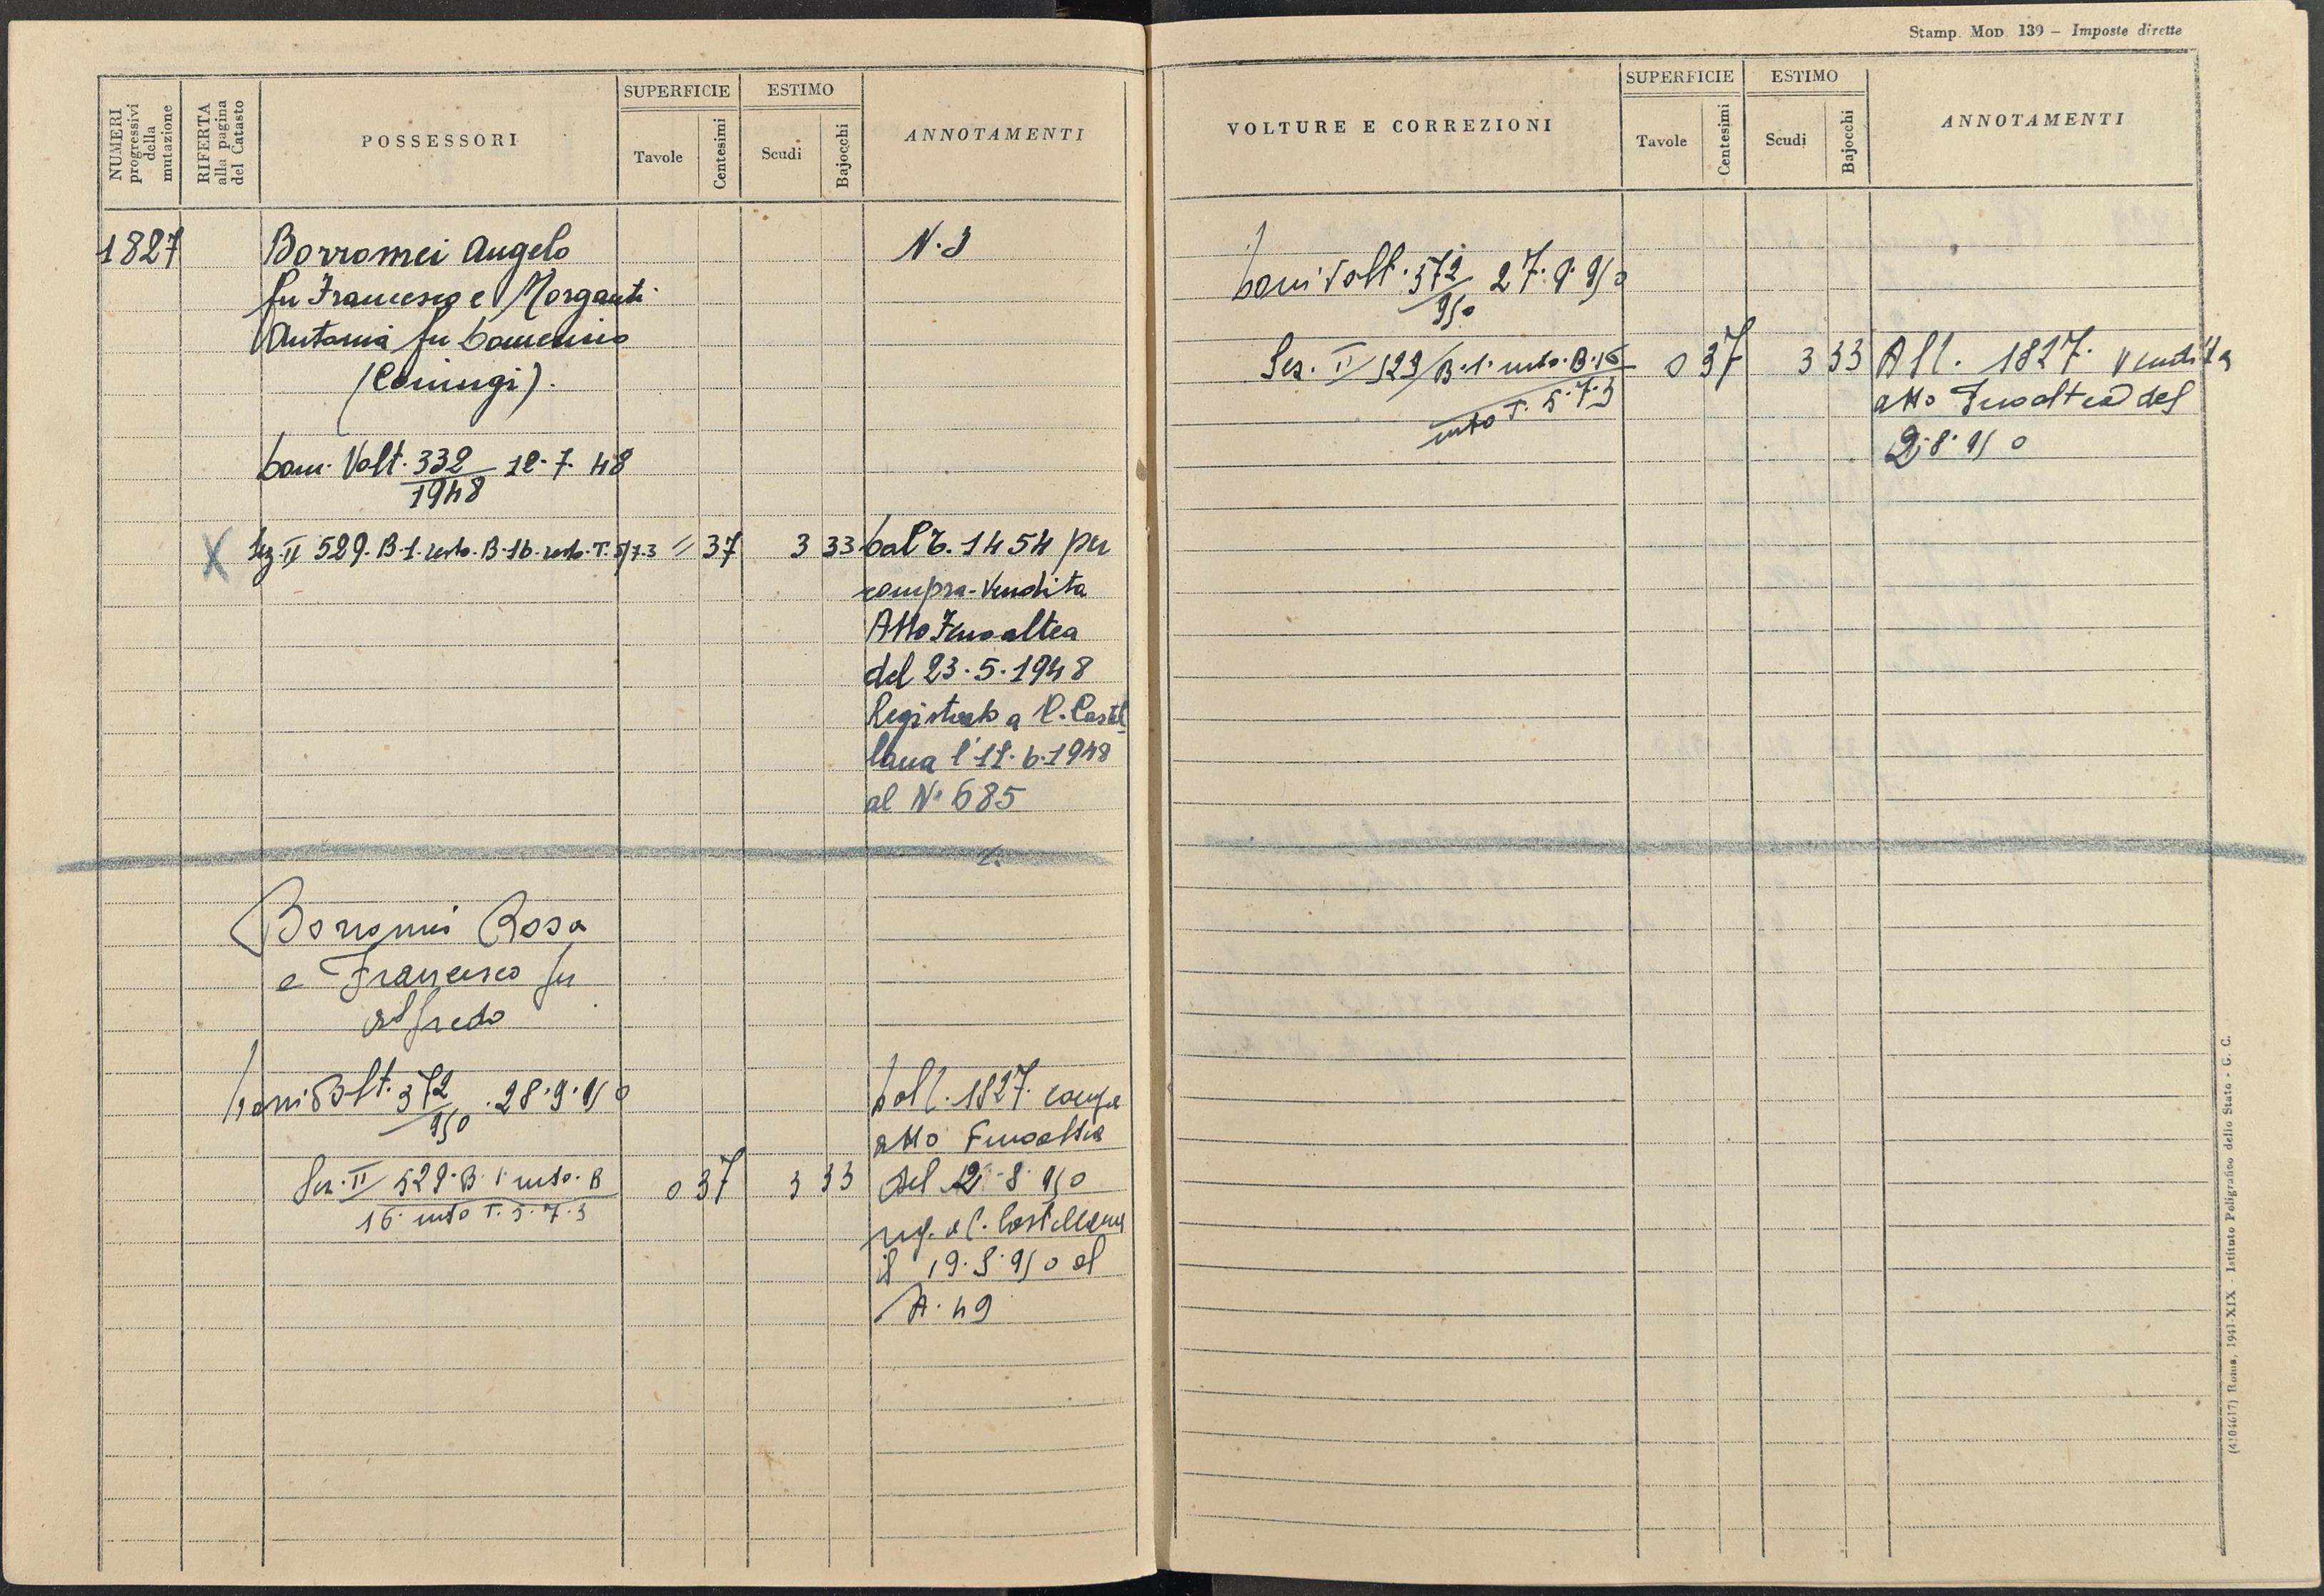 Stamp. Mod. 139 – Imposte dirette
NUMERI progressivi della mutazione
RIFERTA alla pagina del Catasto
POSSESSORI
SUPERFICIE
Tavole
Centesimi
ESTIMO
Scudi
Bajocchi
ANNOTAMENTI
1827
Borromei Angelo
fu Francesco e Morganti
Antonia fu Domenico
(Coniugi).
Dom. Volt. 332/1948 12.7.48
N. 3
X Sez. II 529. B-1. resto. B-16 resto. T. 5/7.3 = 37 3 33
Dal C. 1454 per
compra-Vendita
Atto Fenoaltea
del 23.5.1948
Registrato a C. Castel
lana l'12.6.1948
al N. 685
Borromei Rosa
e Francesco fu
Alfredo
Dom. Volt. 372/950. 28.9.950
Sez. II 529. B. 1 resto. B
16 resto T. 5. 7. 3
0 37 3 33
Dall. 1827. compra
atto Fenoaltea
del 2 8 950
reg. a C. Castellana
il 19.8.950 al
N. 49
VOLTURE E CORREZIONI
SUPERFICIE
Tavole
Centesimi
ESTIMO
Scudi
Bajocchi
ANNOTAMENTI
Dom. Volt. 372/950 27.9.950
Sez. II 529/B.1. resto. B.16
resto T. 5.7.3
0 37 3 33
All. 1827. Vendita
atto Fenoaltea del
2.8.950
(4104617) Roma, 1941-XIX - Istituto Poligrafico dello Stato - G. C.